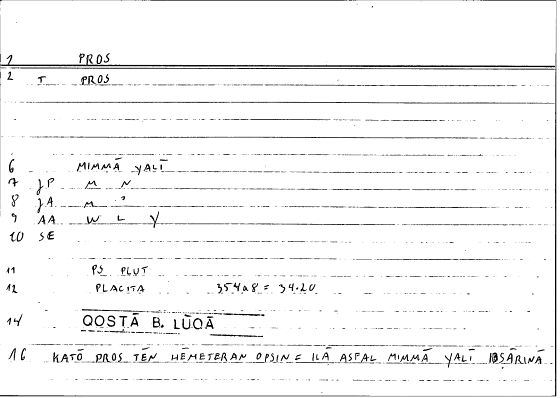 1 PROS
2 T PROS
6 MIMMĀ YALĪ
7 JP M N
8 JA M ʾ
9 AA W L Y
10 SE
11 PS PLUT
12 PLACITA 354a8 = 34.20
14 QOSṬĀ B. LŪQĀ
16 KATŌ PROS TĒN HĒMETERAN OPSIN = ILĀ ASFAL MIMMĀ YALĪ